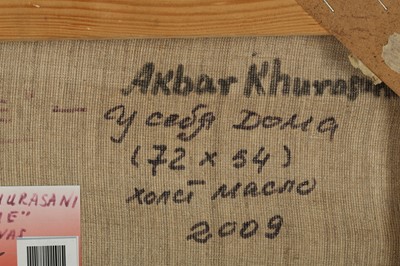 Akbar Khurasani
У себя дома
(72 x 54)
холст масло
2009
HURASANI
E"
VAS